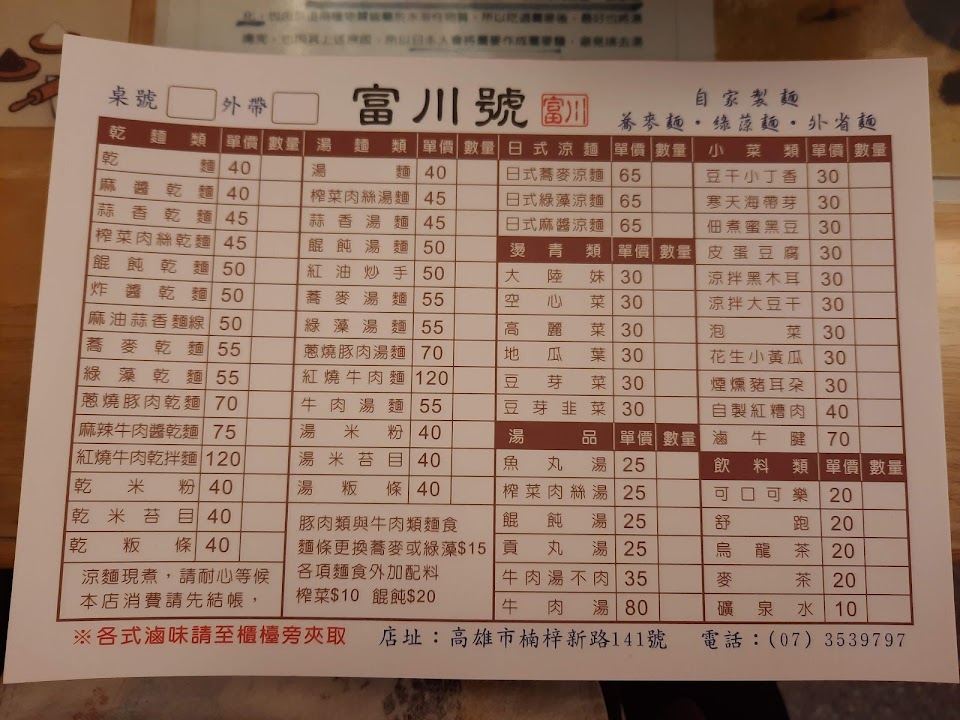 化，也因
桌號 外帶 富川號 富川 自家製麵
蕎麥麵・綠藻麵・外省麵
乾麵類 單價 數量
乾麵 40
麻醬乾麵 40
蒜香乾麵 45
榨菜肉絲乾麵 45
餛飩乾麵 50
炸醬乾麵 50
麻油蒜香麵線 50
蕎麥乾麵 55
綠藻乾麵 55
蔥燒豚肉乾麵 70
麻辣牛肉醬乾麵 75
紅燒牛肉乾拌麵 120
乾米粉 40
乾米苔目 40
乾粄條 40
涼麵現煮，請耐心等候
本店消費請先結帳，
湯麵類 單價 數量
湯麵 40
榨菜肉絲湯麵 45
蒜香湯麵 45
餛飩湯麵 50
紅油炒手 50
蕎麥湯麵 55
綠藻湯麵 55
蔥燒豚肉湯麵 70
紅燒牛肉麵 120
牛肉湯麵 55
湯米粉 40
湯米苔目 40
湯粄條 40
豚肉類與牛肉類麵食
麵條更換蕎麥或綠藻$15
各項麵食外加配料
榨菜$10 餛飩$20
日式涼麵 單價 數量
日式蕎麥涼麵 65
日式綠藻涼麵 65
日式麻醬涼麵 65
燙青類 單價 數量
大陸妹 30
空心菜 30
高麗菜 30
地瓜葉 30
豆芽菜 30
豆芽韭菜 30
湯品 單價 數量
魚丸湯 25
榨菜肉絲湯 25
餛飩湯 25
貢丸湯 25
牛肉湯不肉 35
牛肉湯 80
小菜類 單價 數量
豆干小丁香 30
寒天海帶芽 30
佃煮蜜黑豆 30
皮蛋豆腐 30
涼拌黑木耳 30
涼拌大豆干 30
泡菜 30
花生小黃瓜 30
煙燻豬耳朵 30
自製紅糟肉 40
滷牛腱 70
飲料類 單價 數量
可口可樂 20
舒跑 20
烏龍茶 20
麥茶 20
礦泉水 10
※各式滷味請至櫃檯旁夾取 店址：高雄市楠梓新路141號 電話：(07) 3539797